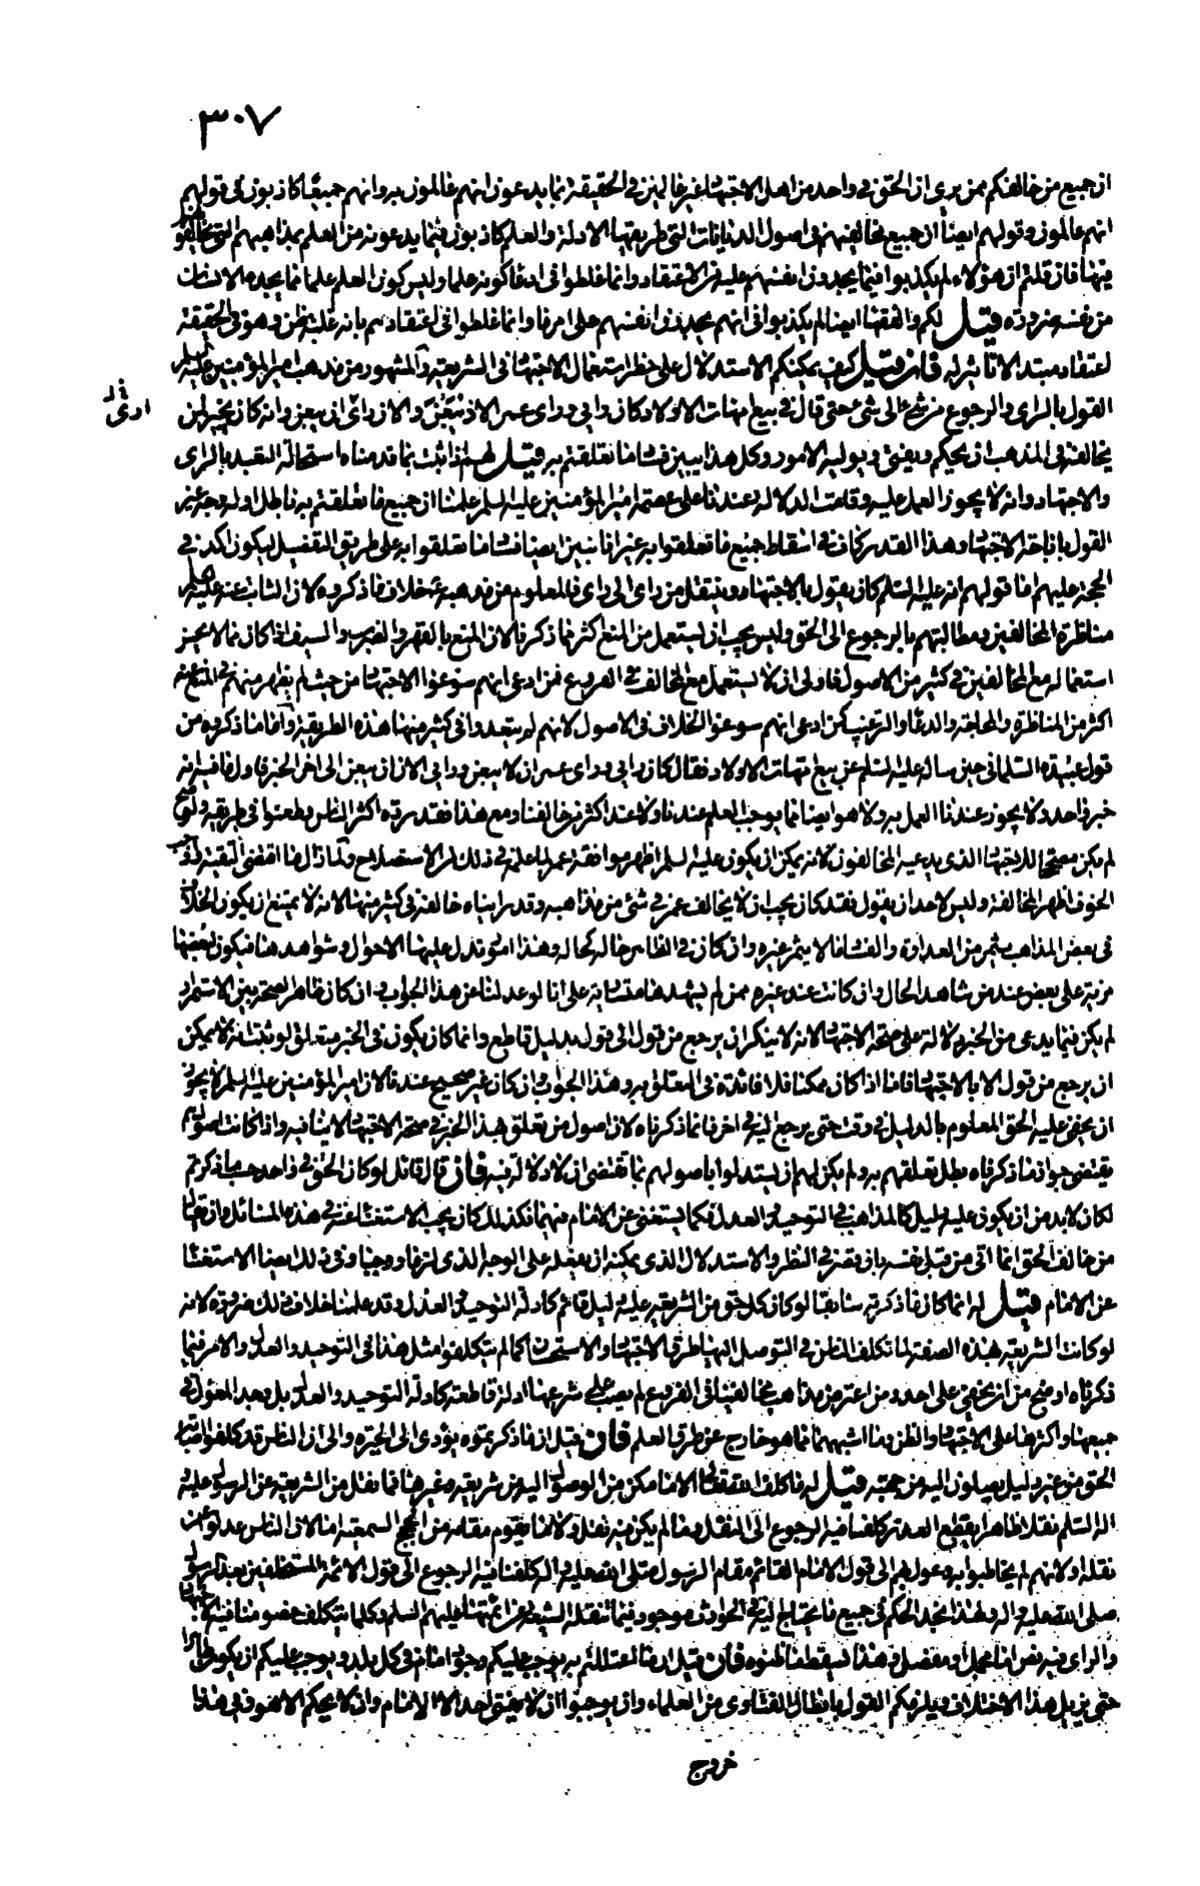 ٣٠٧
ان جميع من خالفكم ممن يرى ان الحق في واحد من اهل الاجتهاد غير عالمين في الحقيقة بما يدعون انهم عالمون به وانهم جميعا كاذبون في قولهم
انهم عالمون وقولهم ايضا ان جميع مخالفيهم في اصول الديانات التي طريقها الادلة والعلم كاذبون فيما يدعونه من العلم بمذاهبهم التي يخالفونكم
فيها فان قلتم ان هؤلاء لم يكذبوا فيما يجدون انفسهم عليه من الاعتقاد وانما غلطوا في ادعا كونه علما وليس كون العلم علما مما يجده الانسان
من نفسه ضرورة قيل لكم والفقهاء ايضا لم يكذبوا في انهم يجدون انفسهم على امر ما وانما غلطوا في اعتقادهم بانه غلبة ظن وهو في الحقيقة
اعتقاد مبتدا لا تاثير له فان قيل كيف يمكنكم الاستدلال على حظر استعمال الاجتهاد في الشريعة والمشهور من مذهب امير المؤمنين عليه السلم
القول بالراى والرجوع من شئ الى شئ حتى قال في بيع امهات الاولاد كان رايي وراى عمر الا يبعن والان رائي ان يبعن وانه كان يخير لمن
ارى
يخالفه في المذهب ان يحكم ويفتي ويوليه الامور وكل هذا يبين فساد ما تعلقتم به قيل لهم اذا ثبت بما قدمناه استحالة التعبد بالراى
والاجتهاد وانه لا يجوز العمل عليه وقامت الدلالة عندنا على عصمة امير المؤمنين عليه السلم علمنا ان جميع ما تعلقتم به باطل او له وجه غير
القول باباحة الاجتهاد وهذا القدر كاف في اسقاط جميع ما تعلقوا به غير انا نبين ايضا فساد ما تعلقوا به على طريق التفصيل ليكون اكد في
الحجة عليهم اما قولهم انه عليه السلم كان يقول بالاجتهاد وينتقل من راى الى راى فالمعلوم من مذهبه ع خلاف ما ذكروه لان الثابت عنه عليه السلم
مناظرة المخالفين ومطالبتهم بالرجوع الى الحق وليس يجب ان يستعمل من المنع اكثر مما ذكرنا لان المنع بالقهر والضرب والسيف اذا كان مما لا يجز
استعماله مع المخالفين في كثير من الاصول فاولى ان لا يستعمل مع المخالف في الفروع فمن ادعى انهم سوغوا الاجتهاد من حيث لم يظهر منهم في المنع منه
اكثر من المناظرة والمحاجة والدعا والترغيب كمن ادعى انهم سوغوا الخلاف في الاصول لانهم لم يتعدوا في كثير منها هذه الطريقة واما ما ذكروه من
قول عبيدة السلماني حين ساله عليه السلم عن بيع امهات الاولاد فقال كان رايي وراى عمر ان لا يبعن ورايي الان ان يبعن الى اخر الخبر فاول ما فيه انه
خبر واحد ولا يجوز عندنا العمل به ولا هو ايضا مما يوجب العلم عندنا ولا عند اكثر من خالفنا ومع هذا فقد رده اكثر الناس وطعنوا في طريقه ولو صح
لم يكن مصححا للاجتهاد الذي يدعيه المخالفون لانه يمكن ان يكون عليه السلم اظهر موافقة عمر لما علمه في ذلك من الاستصلاح ولما زال ما اقتضى التقية
الخوف اظهر المخالفة وليس لاحد ان يقول فقد كان يجب ان لا يخالف عمر في شئ من مذاهبه وقد رايناه خالفه في كثير منها لانه لا يمتنع ان يكون الخلاف
في بعض المذاهب يثمر من العداوة والفساد ما لا يثمر غيره وان كان في الظاهر حاله كحاله وهذا امر تدل عليه الاحوال وشواهدها فيكون لبعضها
مزية على بعض عند من شاهد الحال وان كانت عند غيره ممن لم يشهدها متساوية على انا لو عدلنا عن هذا الجواب وان كان ظاهر الصحة بين الاستمرار
لم يكن فيما يدعى من الخبر دلالة على صحة الاجتهاد لانه لا ينكر ان يرجع من قول الى قول بدليل قاطع وانما كان يكون في الخبر متعلق لو ثبت انه لا يمكن
ان يرجع من قول الا بالاجتهاد فاما اذا كان ممكنا فلا فائدة في التعلق به وهذا الجواب وان كان غير صحيح عندنا لان امير المؤمنين عليه السلم لا يجوز
ان يخفى عليه الحق المعلوم بالدليل في وقت حتى يرجع اليه في اخر فانما ذكرناه لان اصول من تعلق بهذا الخبر في صحة الاجتهاد لا ينافيه واذا كانت اصولهم
يقتضي جواز ما ذكرناه بطل تعلقهم به ولم يكن لهم ان يستدلوا باصولهم بما تقتضي ان لا دلالة فيه فان قال قائل لو كان الحق في واحد حسب ما ذكرتم
لكان لا بد من ان يكون عليه دليل كالمذاهب في التوحيد والعدل فكما يستغنى عن الامام فيهما فكذلك كان يجب الاستغناء عنه في هذه المسائل وان يقال
من خالف الحق انما اتي من قبل نفسه بان قصر في النظر والاستدلال الذي يمكنه ان يفعله على الوجه الذي لزمه ووجب وفي ذلك ايضا الاستغنا
عن الامام قيل له انما كان ما ذكرته سابقا لو كان كل حق من الشريعة عليه دليل قائم كادلة التوحيد والعدل وقد علمنا خلاف ذلك ضرورة لانه
لو كانت الشريعة بهذه الصفة لما تكلف الناس في التوصل اليها طرق الاجتهاد والاستحسان كما لم يتكلفوا مثل هذا في التوحيد والعدل والامر فيما
ذكرناه اوضح من ان يخفى على احد ومن اعتبر من مذاهب مخالفينا في الفروع لم يصب على شرعها ادلة قاطعة كادلة التوحيد والعدل بل وجد المعول في
جميعها واكثرها على الاجتهاد والظن وما اشبههما مما هو خارج عن طرق العلم فان قيل ان ما ذكرتموه يؤدي الى الحيرة والى ان الناس قد كلفوا اصابة
الحق من غير دليل يصلون اليه من جهته قيل له ما كلف الله تعالى الا ما مكن من الوصول اليه من شريعة وغيرها فما نقل من الشريعة عن الرسول عليه
اله السلم نقلا ظاهرا يقطع العذر كلفنا فيه الرجوع الى النقل وما لم يكن فيه نقل ولا ما يقوم مقامه من الحجج السمعية اما لان الناس عدلوا عن
نقله او لانهم لم يخاطبوا به وعول بهم الى قول الامام القائم مقام الرسول صلى الله عليه واله كلفنا فيه الرجوع الى قول الائمة المستخلفين بعد الرسول
صلى الله عليه واله ولهذا نجد الحكم في جميع ما يحتاج اليه في الحوادث موجودا فيما تنقله الشيعة عن ائمتها عليهم السلم وكلما يتكلف خصومنا فيه الاجتهاد
والراى فيه نص اما مجمل او مفصل وهذا يسقط ما ظنوه فان قيل ايضا اعتلالكم به يوجب عليكم وجود امام في كل بلد ويوجب عليكم ان يكون ظاهرا
حتى يزيل هذا الاختلاف ويلزمكم القول بابطال الفتاوى من العلماء وان يوجبوا ان لا يفتي احد الا الامام وان لا يحكم الا هو وفي هذا
خروج